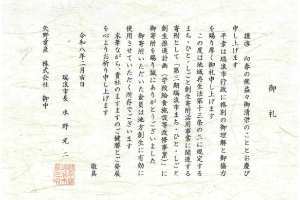 御礼
謹啓 向春の候益々御清栄のこととお慶び
申し上げます
平素は瑞浪市行政に格別の御理解と御協力
を賜り厚く御礼申し上げます
この度は地域再生法第十三条の二に規定する
まち・ひと・しごと創生寄附活用事業に関連する
寄附として「第二期瑞浪市まち・ひと・しごと
創生推進計画(学校給食施設等改修事業)」に
御寄附を賜り誠にありがとうございました
御寄附いただいた浄財は地方創生に有効に
使用させていただく所存でございます
末筆ながら貴社のますますのご健勝とご発展
を心よりお祈り申し上げます
敬具
令和八年二月吉日
瑞浪市長 水野光二
矢野重産 株式会社 御中